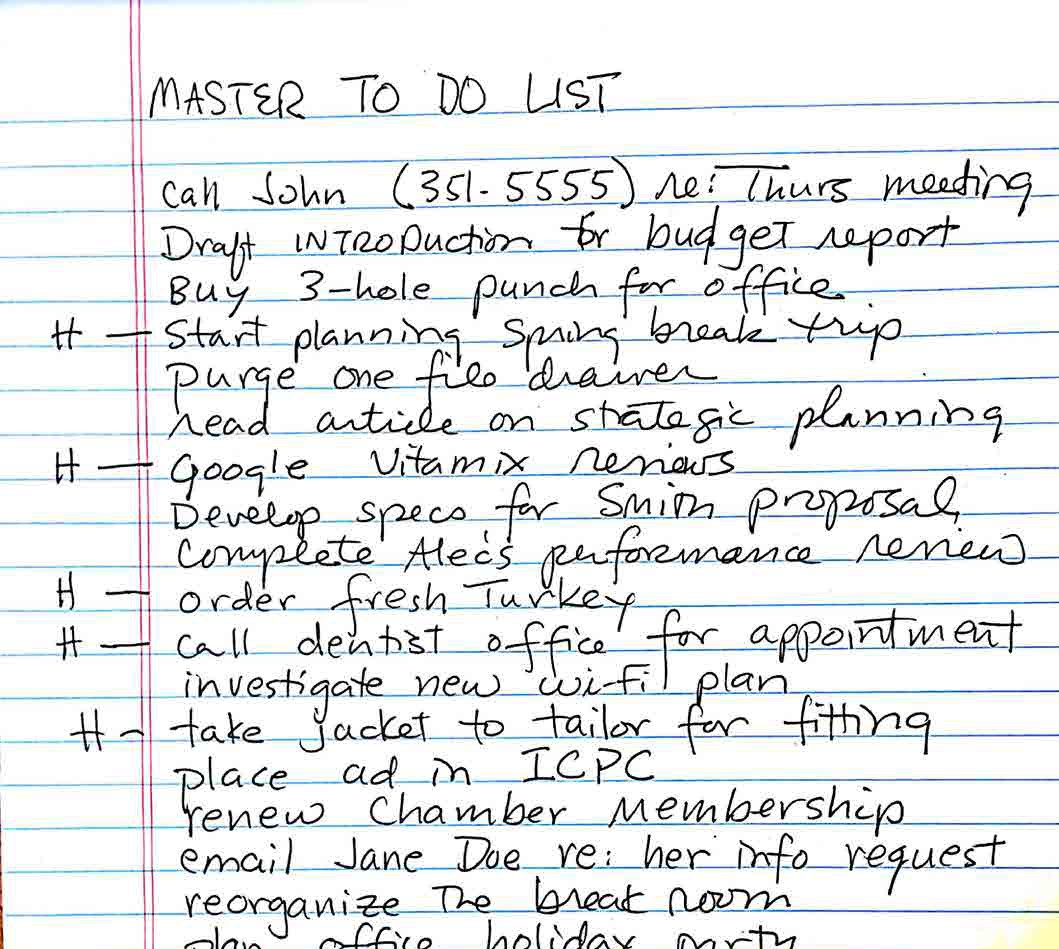 MASTER TO DO LIST
Call John (351-5555) re: Thurs meeting
Draft INTRODuction for budget report
Buy 3-hole punch for office
H — Start planning Spring break trip
Purge one file drawer
read article on strategic planning
H — Google Vitamix reviews
Develop specs for Smith proposal
Complete Alec's performance review
H — order fresh Turkey
H — call dentist office for appointment
investigate new wi-fi plan
H - take jacket to tailor for fitting
place ad in ICPC
renew Chamber Membership
email Jane Doe re: her info request
reorganize The break room
plan office holiday party